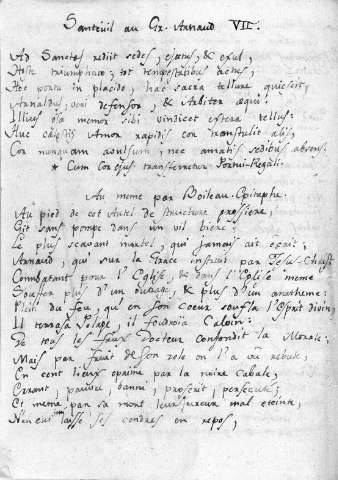 Santeuil au Gr. Arnaud VII.
Ad Sanctas rediit sedes, ejectus, & exul,
Hoste triumphato; tot tempestatibus actus,
Hoc portu in placido, hac sacra tellure quiescit,
Arnaldus, veri defensor, & Arbiter aequi.
Illius ossa memor sibi vindicet extera tellus:
Huc caelestis Amor rapidis cor transtulit alis,
Cor nunquam avulsum, nec amatis sedibus absens.
* Cum Cor ejus transferretur Portui-Regali.
Au meme par Boileau. Epitaphe.
Au pied de cet Autel de structure grossiere,
Git sans pompe dans un vil biere
Le plus scavant mortel, qui jamais ait ecrit;
Arnaud, qui sur la Grace instruit par Jesu-Christ
Combatant pour l'Eglise, & dans l'Eglise meme
Souffrit plus d'un outrage, & plus d'un anatheme:
Plein du feu, qu'en son coeur souffla l'Esprit divin,
Il terrassa Pelage, il foudroia Calvin:
De tous les faux Docteur confondit la Morale:
Mais par fruit de son zele on l'a vu rebuté,
En cent lieux oprimé par la noire Cabale,
Errant, pauvre banni, proscrit, persecuté;
Et meme par sa mort leur fureur mal eteinte,
N'en eut jam laissé ses cendres en repos,